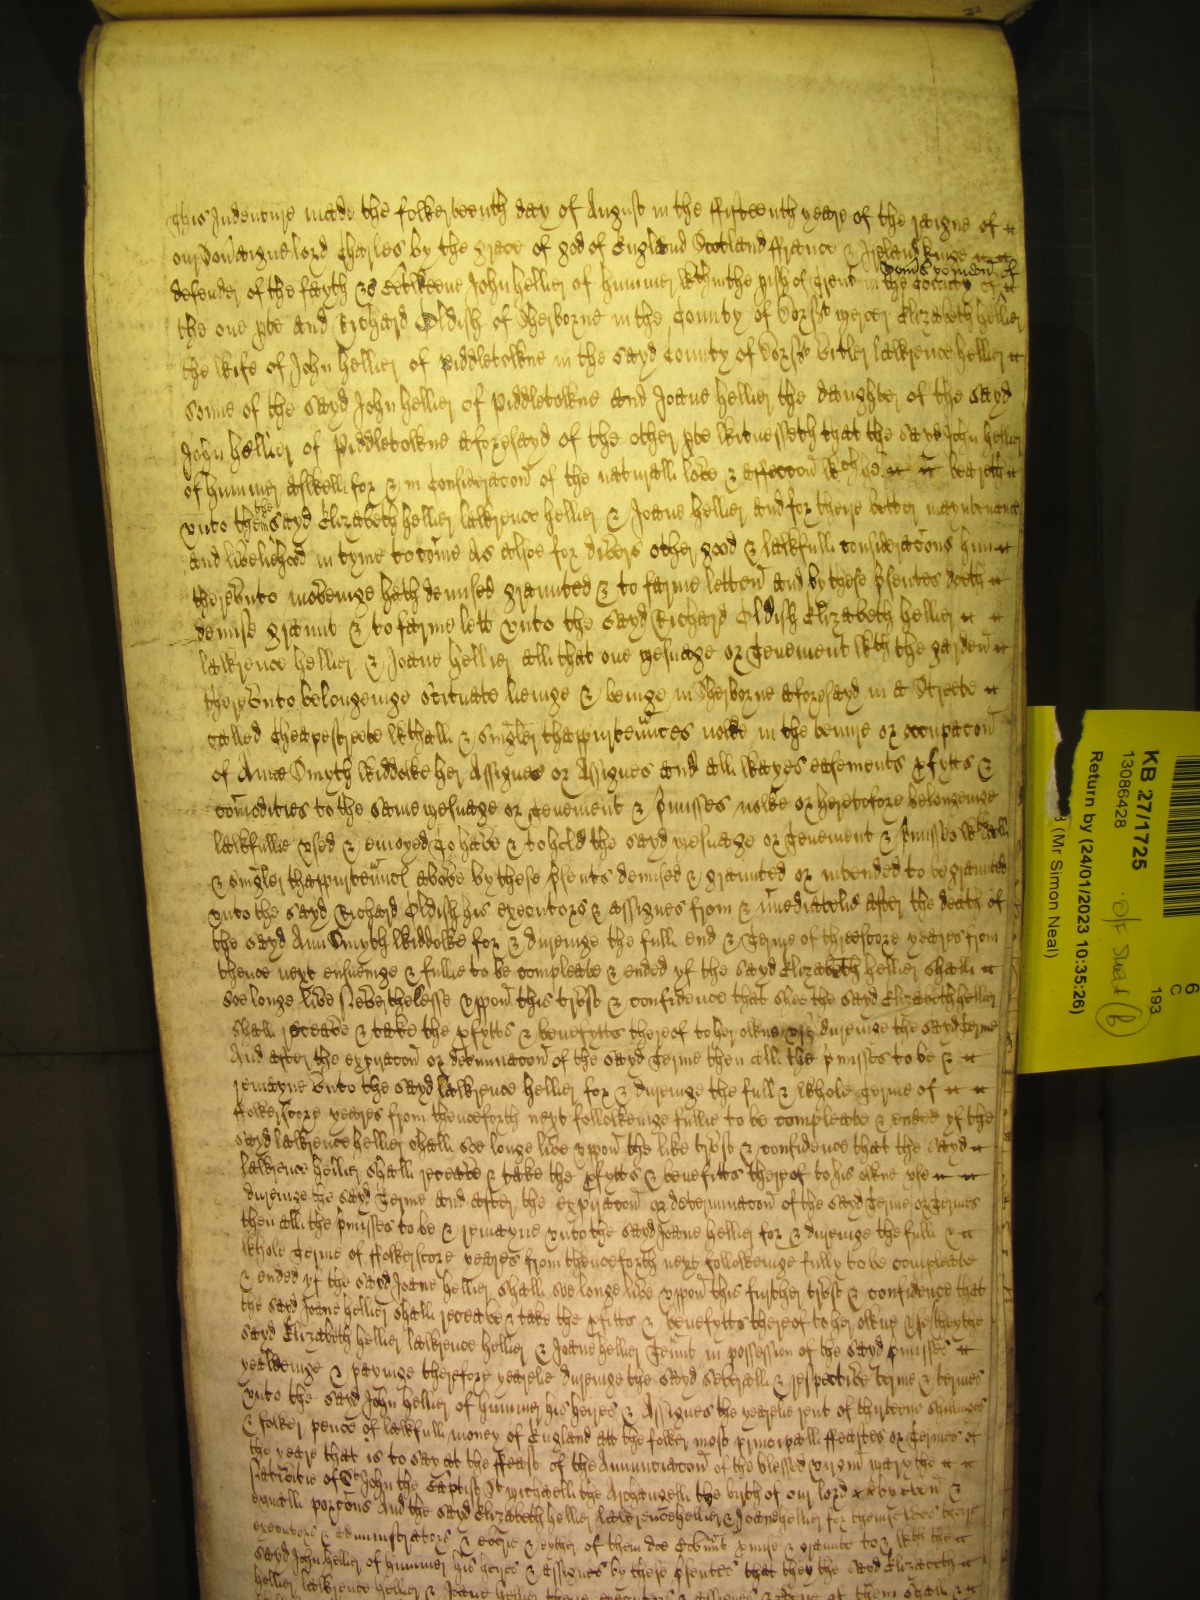 This Indenture made the fowerteenth day of August in the fifteenth yeare of the raigne of
our Soveraigne lord Charles by the grace of god of England Scotland ffrance & Ireland kinge
defender of the fayth &c Betweene John hellier of hummer within the pish of Trent in the County of Somersett of
the one pte and Richard Oldish of Sherborne in the County of Dorset mercer Elizabeth hellier
the wife of John hellier of Piddletowne in the sayd County of Dorset Lawrence hellier
sonne of the sayd John hellier of Piddletowne and Joane hellier the daughter of the sayd
John hellier of Piddletowne aforesayd of the other pte Witnesseth that the sayd John hellier
of hummer aswell for & in Consideracon of the naturall love & affeccon wch hee beareth
unto them the sayd Elizabeth hellier lawrence hellier & Joane hellier and for theire better maintenance
and livelihood in tyme to come As alsoe for divers other good & lawfull consideracons him
thereunto moveinge hath demised graunted & to farme letten and by these psentes doeth
demise graunt & to farme lett unto the sayd Richard Oldish Elizabeth hellier
lawrence hellier & Joane hellier all that one mesuage or Tenement wth the garden
thereunto belongeinge scituate lieinge & beinge in Sherborne aforesayd in a Streete
called Cheapestreete wthall & singler thappurtennces nowe in the tenure or occupacon
of Anne Smyth widdowe her Assignes or Assignes and all wayes easements pfytts &
comodities to the same mesuage or Tenement & pmisses nowe or heretofore belongeinge
lawfullie used & enioyed To have & to hold the sayd mesuage or Tenement & pmisses wthall
& singler thappurtennces above by these psents demised & graunted or intended to be graunted
unto the sayd Richard Oldish his executors & assignes from & imediatelie after the death of
the sayd Ann Smyth widdowe for & dureinge the full end & Terme of threescore yeares from
thence next ensueinge & fullie to be compleate & ended yf the sayd Elizabeth hellier shall
soe longe live Neverthelesse uppon this trust & confidence that shee the sayd Elizabeth hellier
shall receave & take the pfytts & benefytts thereof to her owne use dureinge the sayd terme
And after the expiracon or determinacon of the sayd Terme then all the pmisses to be &
remayne unto the sayd lawrence hellier for & dureinge the full & whole Terme of
ffowerscore yeares from thenceforth next followeinge fullie to be compleate & ended yf the
sayd lawrence hellier shall soe longe live uppon the like trust & confidence that the sayd
lawrence hellier shall receave & take the pfytts & benefitts thereof to his owne use
dureinge the sayd Terme and after the expiracon or determinacon of the sayd Terme or Termes
then all the pmisses to be & remayne unto the sayd Joane hellier for & dureinge the full &
whole Terme of ffowerscore yeares from thenceforth next followeinge fully to be compleate
& ended yf the sayd Joane hellier shall soe longe live uppon this further trust & confidence that
the sayd Joane hellier shall receave & take the pfitts & benefytts thereof to her owne use they the
sayd Elizabeth hellier lawrence hellier & Joane hellier Tennt in possession of the sayd pmisses
yealdeinge & payinge therefore yearelie dureinge the sayd severall & respective terme & termes
unto the sayd John hellier of hummer his heires & Assignes the yearelie rent of thirteene shillinges
& fower pence of lawfull money of England att the fower most principall ffeastes or Termes of
the yeare that is to say at the ffeast of the Annunciacon of the blessed virgin mary the
Nativitie of St John the Baptist St michaell the Archangell the birth of our lord by even &
equall porcons And the sayd Elizabeth hellier lawrence hellier & Joane hellier for themselves theire
executors & administrators & every & eyther of them doe Covennt pmise & graunte to & wth the
sayd John hellier of hummer his heires & assignes by these psentes that they the sayd Elizabeth
hellier lawrence hellier & Joane hellier theire executors & assignes & every of them shall &
KB 27/1725
13086428
Return by (24/01/2023 10:35:26)
(Mr Simon Neal)
193
6
C